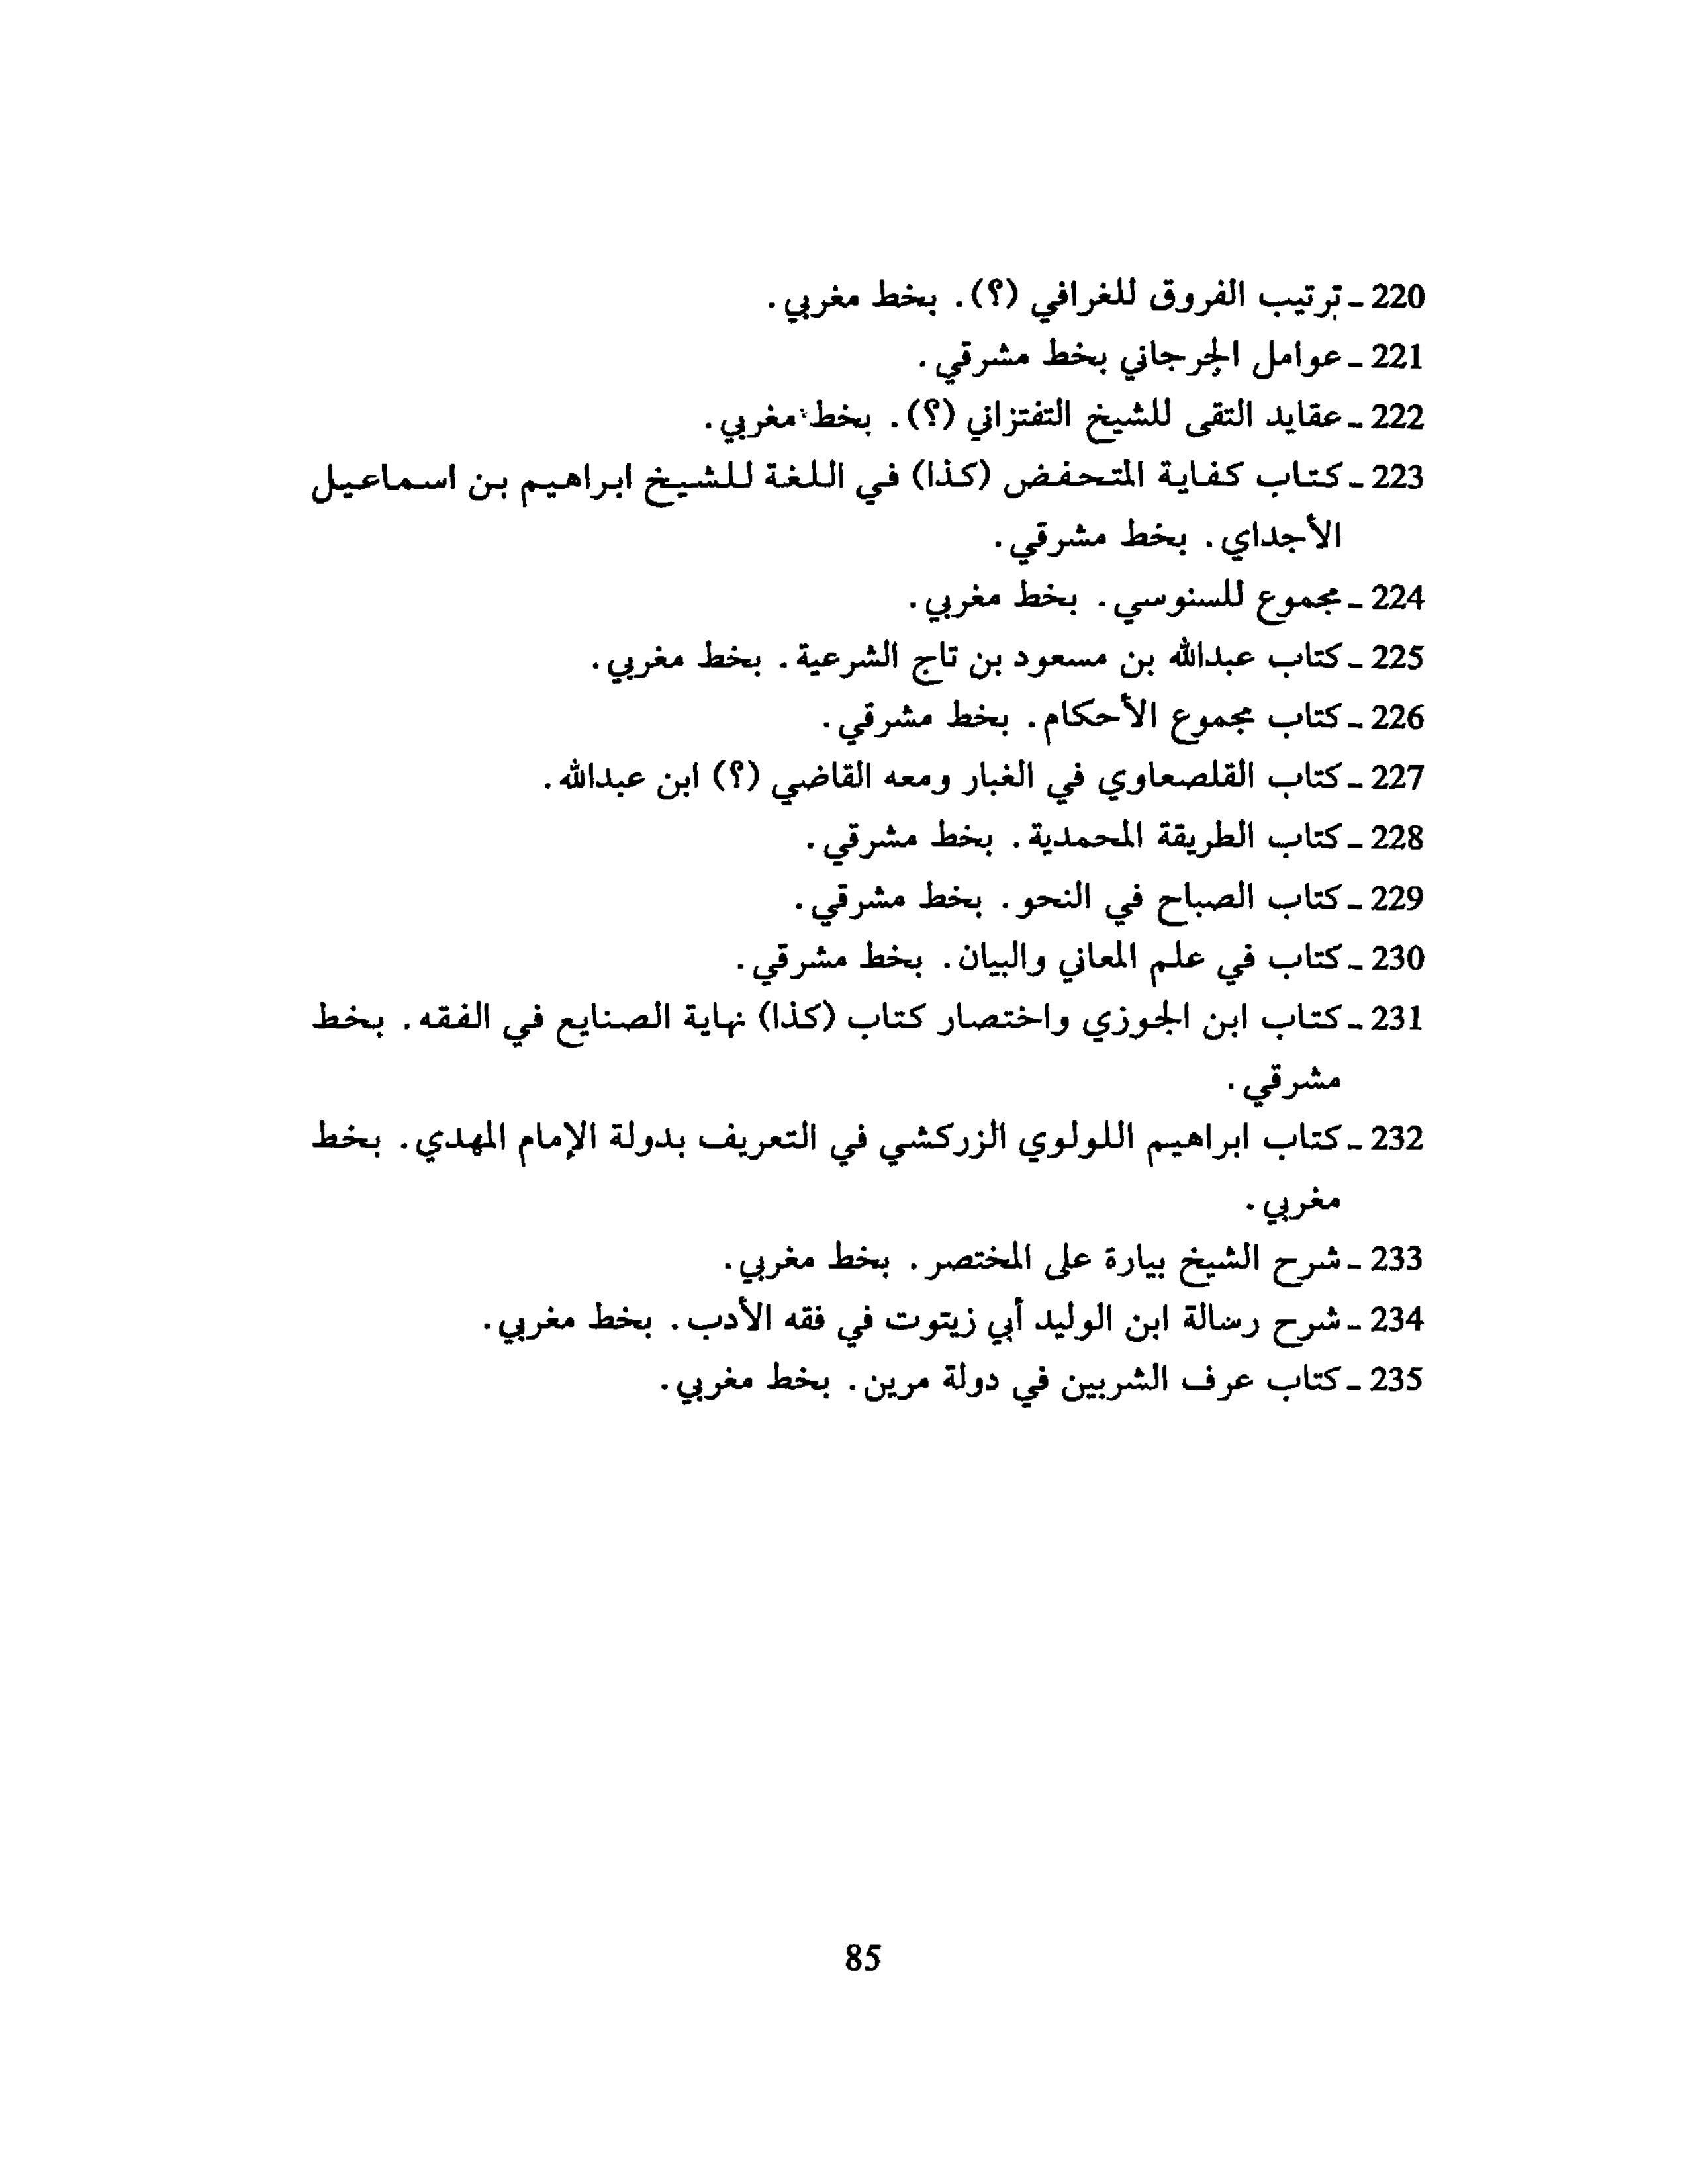 220 - ترتيب الفروق للغرافي (؟). بخط مغربي.
221 - عوامل الجرجاني بخط مشرقي.
222 - عقايد التقى للشيخ التفتزاني (؟). بخط مغربي.
223 - كتاب كفاية المتحفض (كذا) في اللغة للشيخ ابراهيم بن اسماعيل
الأجداي. بخط مشرقي.
224 - مجموع للسنوسي. بخط مغربي.
225 - كتاب عبدالله بن مسعود بن تاج الشرعية. بخط مغربي.
226 - كتاب مجموع الأحكام. بخط مشرقي.
227 - كتاب القلصعاوي في الغبار ومعه القاضي (؟) ابن عبدالله.
228 - كتاب الطريقة المحمدية. بخط مشرقي.
229 - كتاب الصباح في النحو. بخط مشرقي.
230 - كتاب في علم المعاني والبيان. بخط مشرقي.
231 - كتاب ابن الجوزي واختصار كتاب (كذا) نهاية الصنايع في الفقه. بخط
مشرقي.
232 - كتاب ابراهيم اللولوي الزركشي في التعريف بدولة الإمام المهدي. بخط
مغربي.
233 - شرح الشيخ بيارة على المختصر. بخط مغربي.
234 - شرح رسالة ابن الوليد أبي زيتوت في فقه الأدب. بخط مغربي.
235 - كتاب عرف الشربين في دولة مرين. بخط مغربي.
85